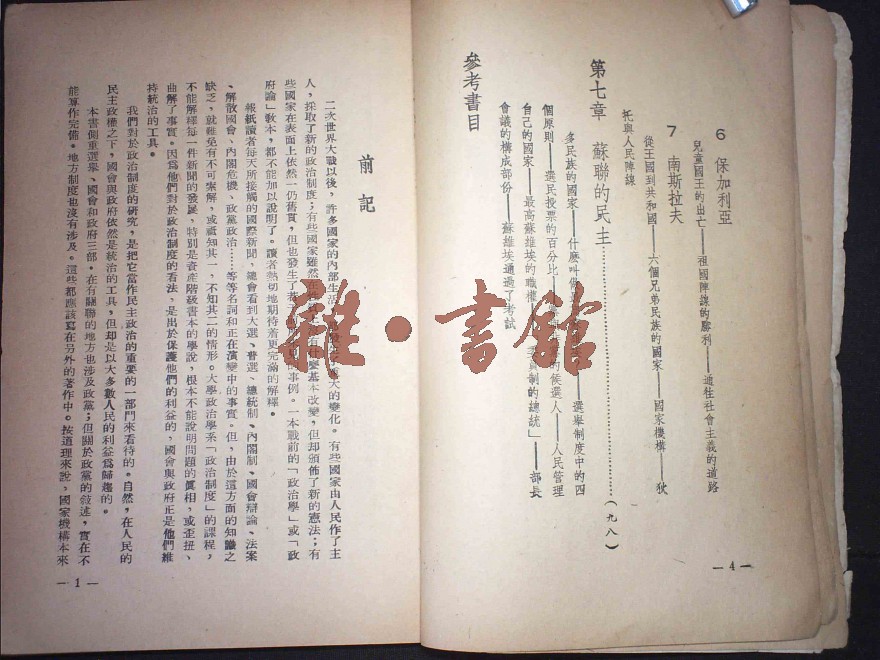 6 保加利亞
兒童國王的出亡——祖國陣線的勝利——通往社會主義的道路
7 南斯拉夫
從王國到共和國——六個兄弟民族的國家——國家機構——狄
托與人民陣線
第七章 蘇聯的民主……(九八)
多民族的國家——什麼叫做——選舉制度中的四
個原則——選民投票的百分比——的候選人——人民管理
自己的國家——最高蘇維埃的職權——制的總統」——部長
會議的構成部份——蘇維埃通過了考試
參考書目
—4—
前記
二次世界大戰以後,許多國家的內部生活,大的變化。有些國家由人民作了主
人,採取了新的政治制度;有些國家雖然在性質上沒有什麼基本改變,但却頒佈了新的憲法;有
些國家在表面上依然一仍舊貫,但也發生了若干事例。一本戰前的「政治學」或「政
府論」教本,都不能加以說明了。讀者熱切地期待着更完滿的解釋。
報紙讀者每天所接觸的國際新聞,總會看到大選、普選、總統制、內閣制、國會辯論、法案
、解散國會、內閣危機、政黨政治……等等名詞和正在演變中的事實。但,由於這方面的知識之
缺乏,就難免有不可索解,或祗知其一,不知其二的情形。大學政治學系「政治制度」的課程,
不能解釋每一件新聞的發展,特別是資產階級書本的學說,根本不能說明問題的眞相,或歪扭、
曲解了事實。因為他們對於政治制度的看法,是出於保護他們的利益的,國會與政府正是他們維
持統治的工具。
我們對於政治制度的研究,是把它當作民主政治的重要的一部門來看待的。自然,在人民的
民主政權之下,國會與政府依然是統治的工具,但却是以大多數人民的利益爲歸趨的。
本書側重選舉、國會和政府三部。在有關聯的地方也涉及政黨;但關於政黨的敘述,實在不
能算作完備。地方制度也沒有涉及。這些都應該寫在另外的著作中。按道理來說,國家機構本來
—1—
雜·書館